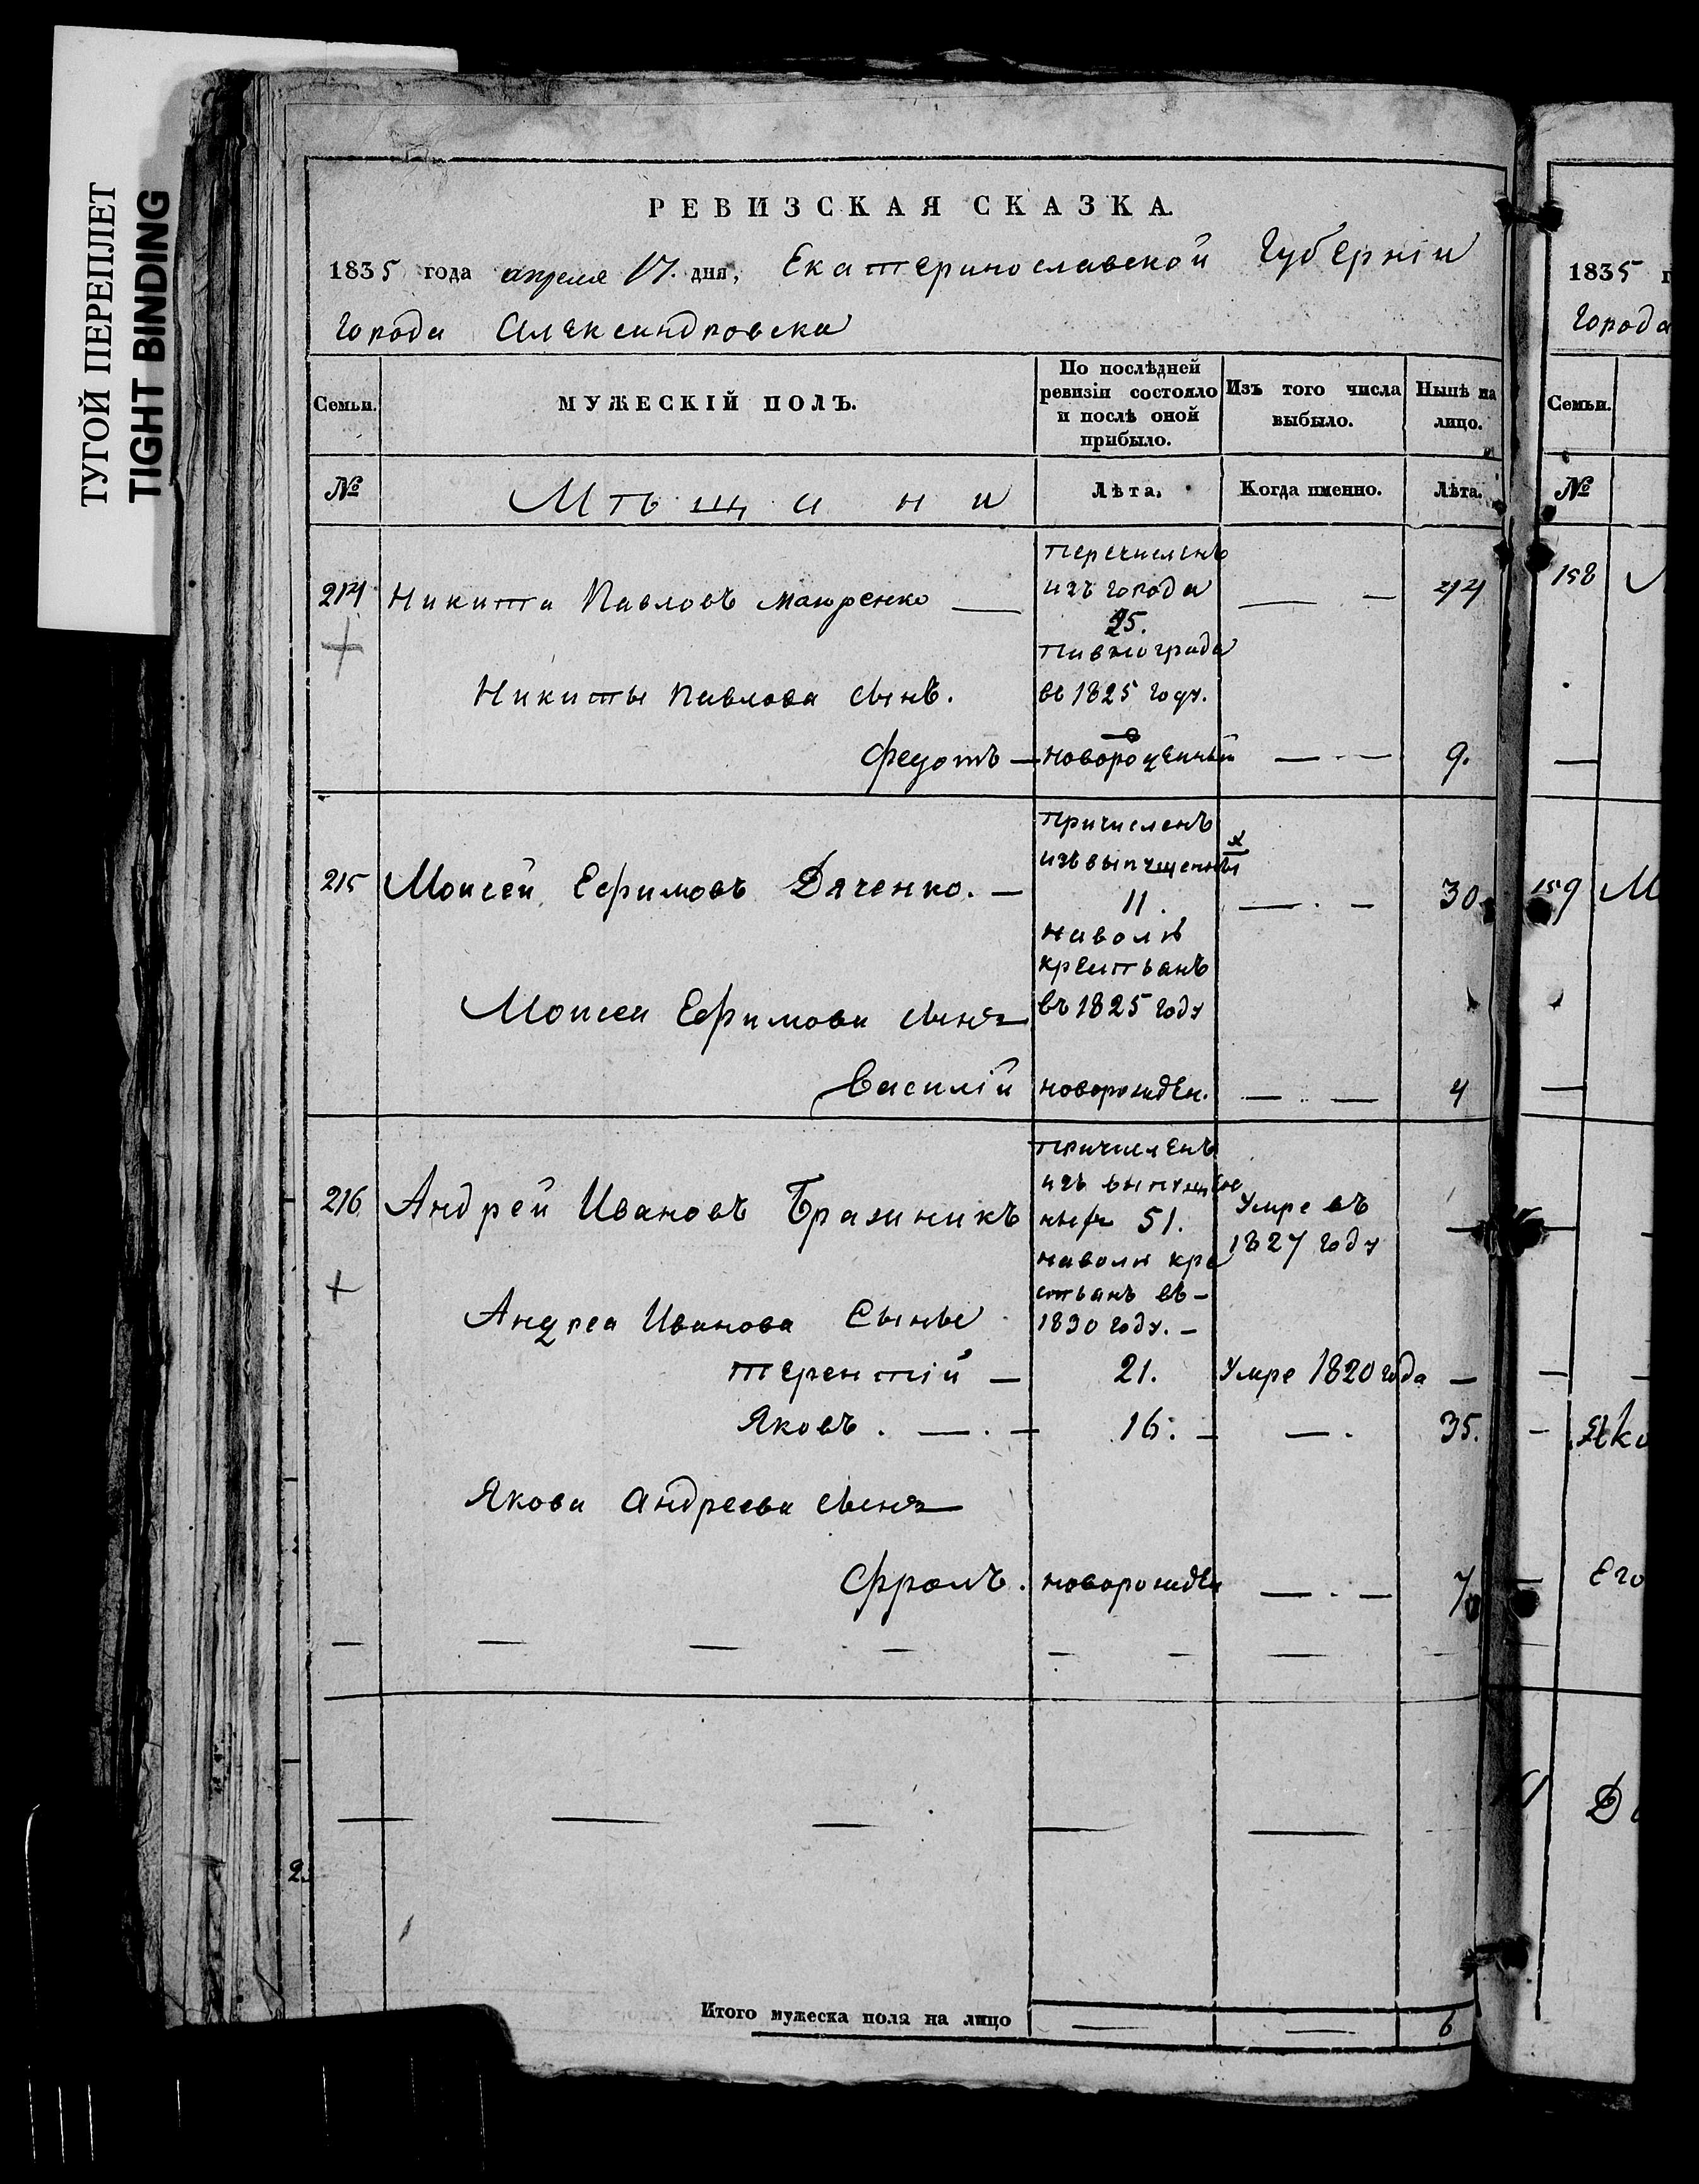 ТУГОЙ ПЕРЕПЛЕТ
TIGHT BINDING
РЕВИЗСКАЯ СКАЗКА.
1835 года апреля 17. дня, Екатеринославской Губерніи
города Александровска
Семьи.
МУЖЕСКІЙ ПОЛЪ.
По послѣдней ревизіи состояло и послѣ оной прибыло.
Изъ того числа выбыло.
Нынѣ на лицо.
№
Мѣщани
Лѣта.
Когда именно.
Лѣта.
214 Никита Павловъ — перечисленъ изъ города 25. — 44
Павлограда
Никиты Павлова сынъ. въ 1825 году.
Федотъ — новорожденный — 9.
215 Моисей Ефимовъ Дяченко. — причисленъ изъ выпущенныхъ 11. — 30
наволю
крестьянъ
Моисея Ефимова сынъ въ 1825 году
Василій новорожден. — 4
216 Андрей Ивановъ Бражникъ причисленъ изъ выпущенныхъ 51. Умре въ 1827 году —
наволю кре
стьянъ въ —
Андрея Иванова Сынъе 1830 году. —
Терентій — 21. Умре 1820 года —
Яковъ. — 16. — 35.
Якова Андреева сынъ
Фролъ. новорожден — 7
Итого мужеска пола на лицо — — 6
2
1835 г
Города
Семьи.
№
158
159 М
Яко
Его